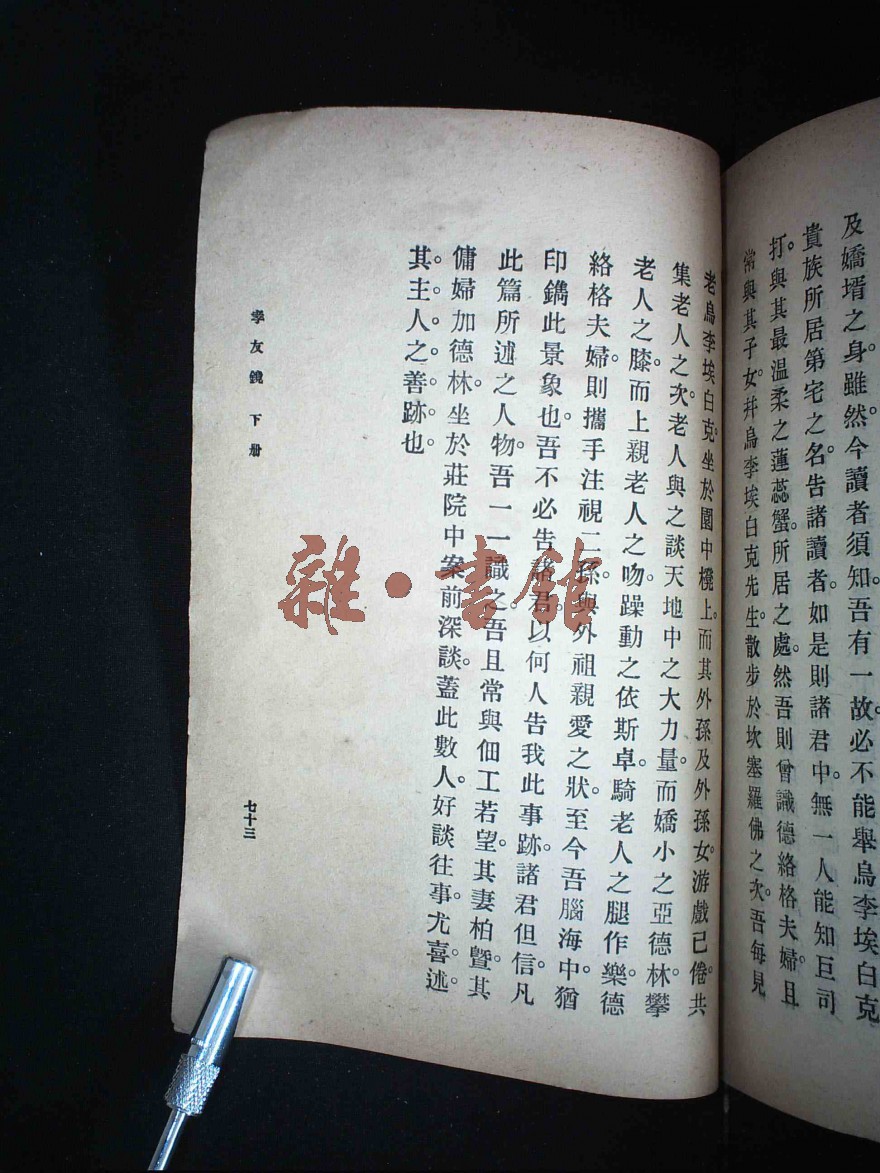 及嬌壻之身。雖然。今讀者須知。吾有一故。必不能舉烏李埃白克
貴族所居第宅之名。告諸讀者。如是則諸君中。無一人能知巨司
打。與其最溫柔之蓮蕊蟹。所居之處。然吾則曾識德絡格夫婦。且
常與其子女。幷烏李埃白克先生。散步於坎塞羅佛之次。吾每見
老烏李埃白克。坐於園中櫈上。而其外孫及外孫女。游戲已倦。共
集老人之次。老人與之談天地中之大力量。而嬌小之亞德林。攀
老人之膝。而上親老人之吻。躁動之依斯卓。騎老人之腿作樂。德
絡格夫婦。則攜手注視二孫。與外祖親愛之狀。至今吾腦海中。猶
印鐫此景象也。吾不必告諸君。以何人告我此事跡。諸君但信凡
此篇所述之人物。吾一一識之。吾且常與佃工若望。其妻柏。曁其
傭婦加德林。坐於莊院中案前深談。蓋此數人。好談往事。尤喜述
其主人之善跡也
孝友鏡 下册
七十三
雜·書館